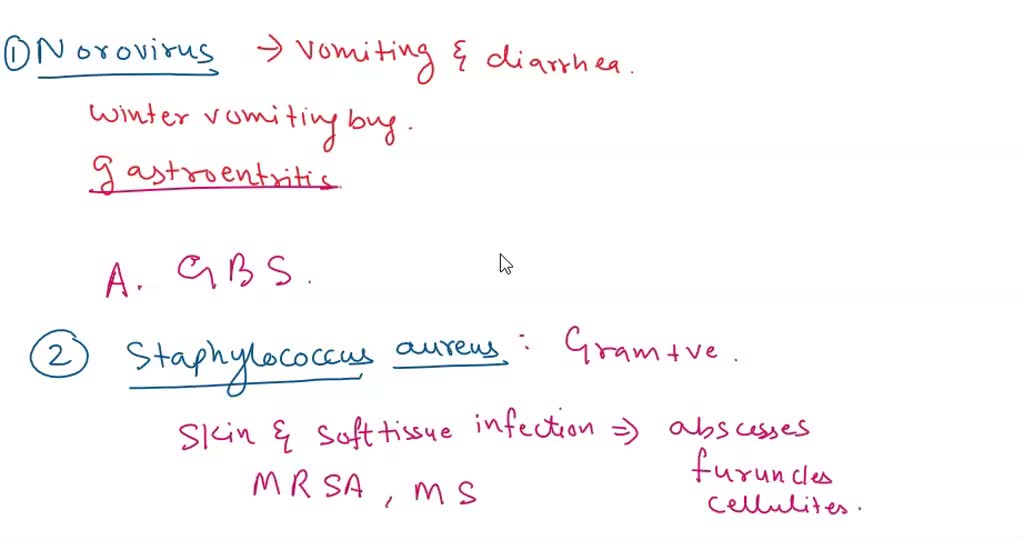 ① Norovirus → vomiting & diarrhea.
winter vomiting bug.
gastroentritis.
A. GBS.
② Staphylococcus aureus : Gram +ve.
Skin & soft tissue infection ⇒ abscesses
MRSA, MS furuncles
cellulites.